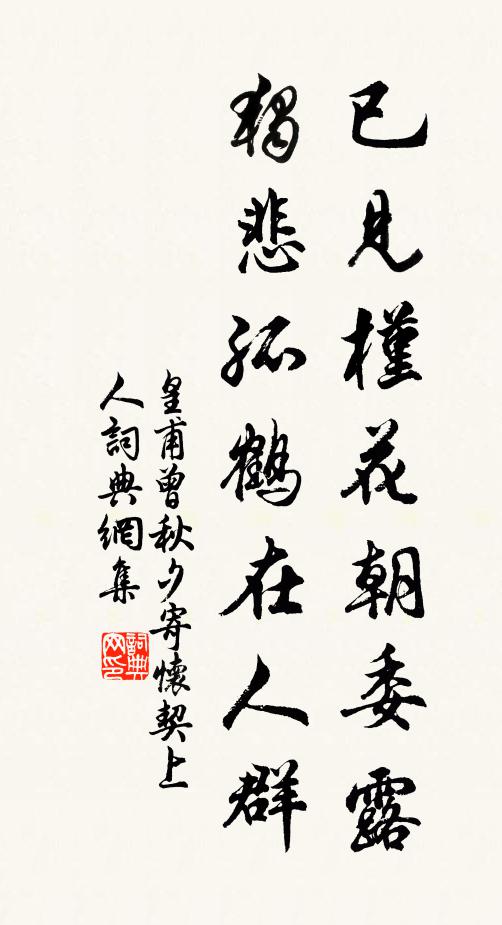 已見槿花朝委露
獨悲孤鶴在人群
皇甫曾秋夕寄懷契上
人詞典網集
詞典
网印